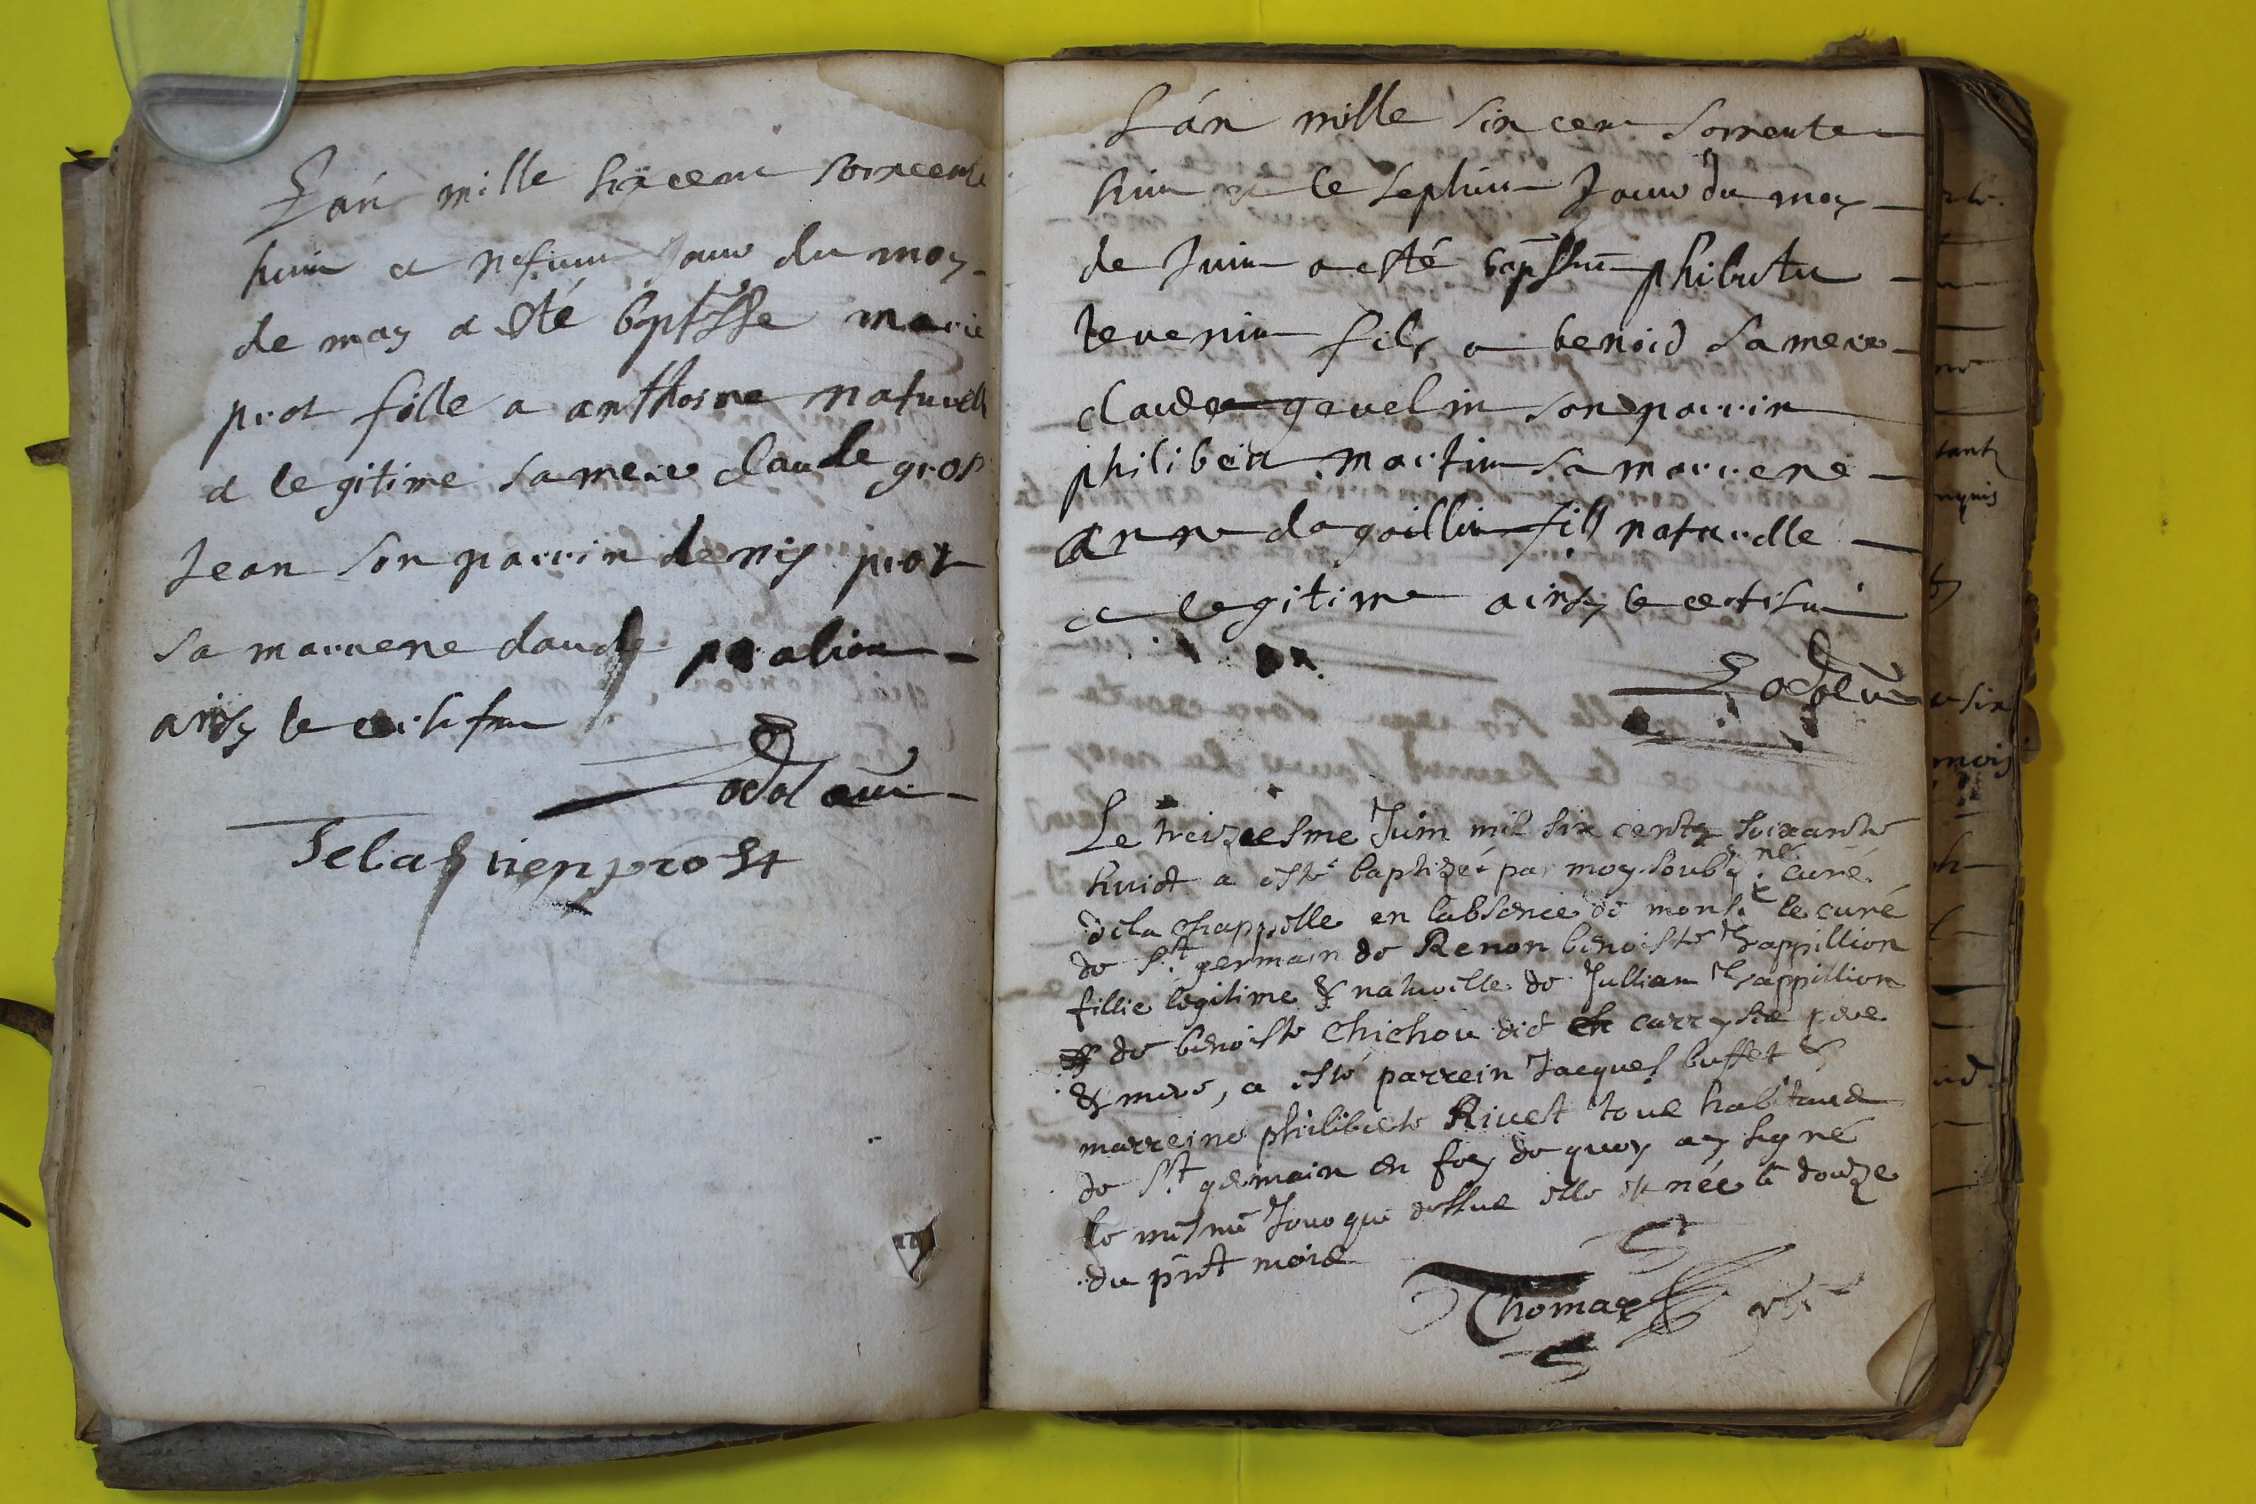 Lan mille six cent soixcente
huit et jour du moy
de may a esté baptisse marie
prost fille a anthoine naturelle
et legitime sa mere claude gros
Jean son parrin denis prost
sa marrene claude
ainsy le certifiant
odol curé
Sebastien prost
Lan mille six cent soixente
huit et le septiem Jour du moy
de Juin a esté baptissé philibertu
tevenin fils a benoid sa mere
claude gevelin son parrin
philibert martin sa marrene
anne dagoillin fils naturelle
et legitime ainsy le certifiant
odol curé
Le treiziesme Juin mil six centz soixante
huict a esté baptizeé par moy soubz.né curé
de la chappelle en labsence de mons.r le curé
de S.t germain de Renon benoiste Thappillion
fillie legitime & naturelle de Jullian Thappillion
& de benoiste Chichou dict carry ste pere
& mere, a esté parrein Jacques buffet &
marreine philiberte Rivet tous habitans
de S.t germain en foy de quoy ay signé
le mesme Jour que dessus elle est née le douze
du pnt mois
Thomas